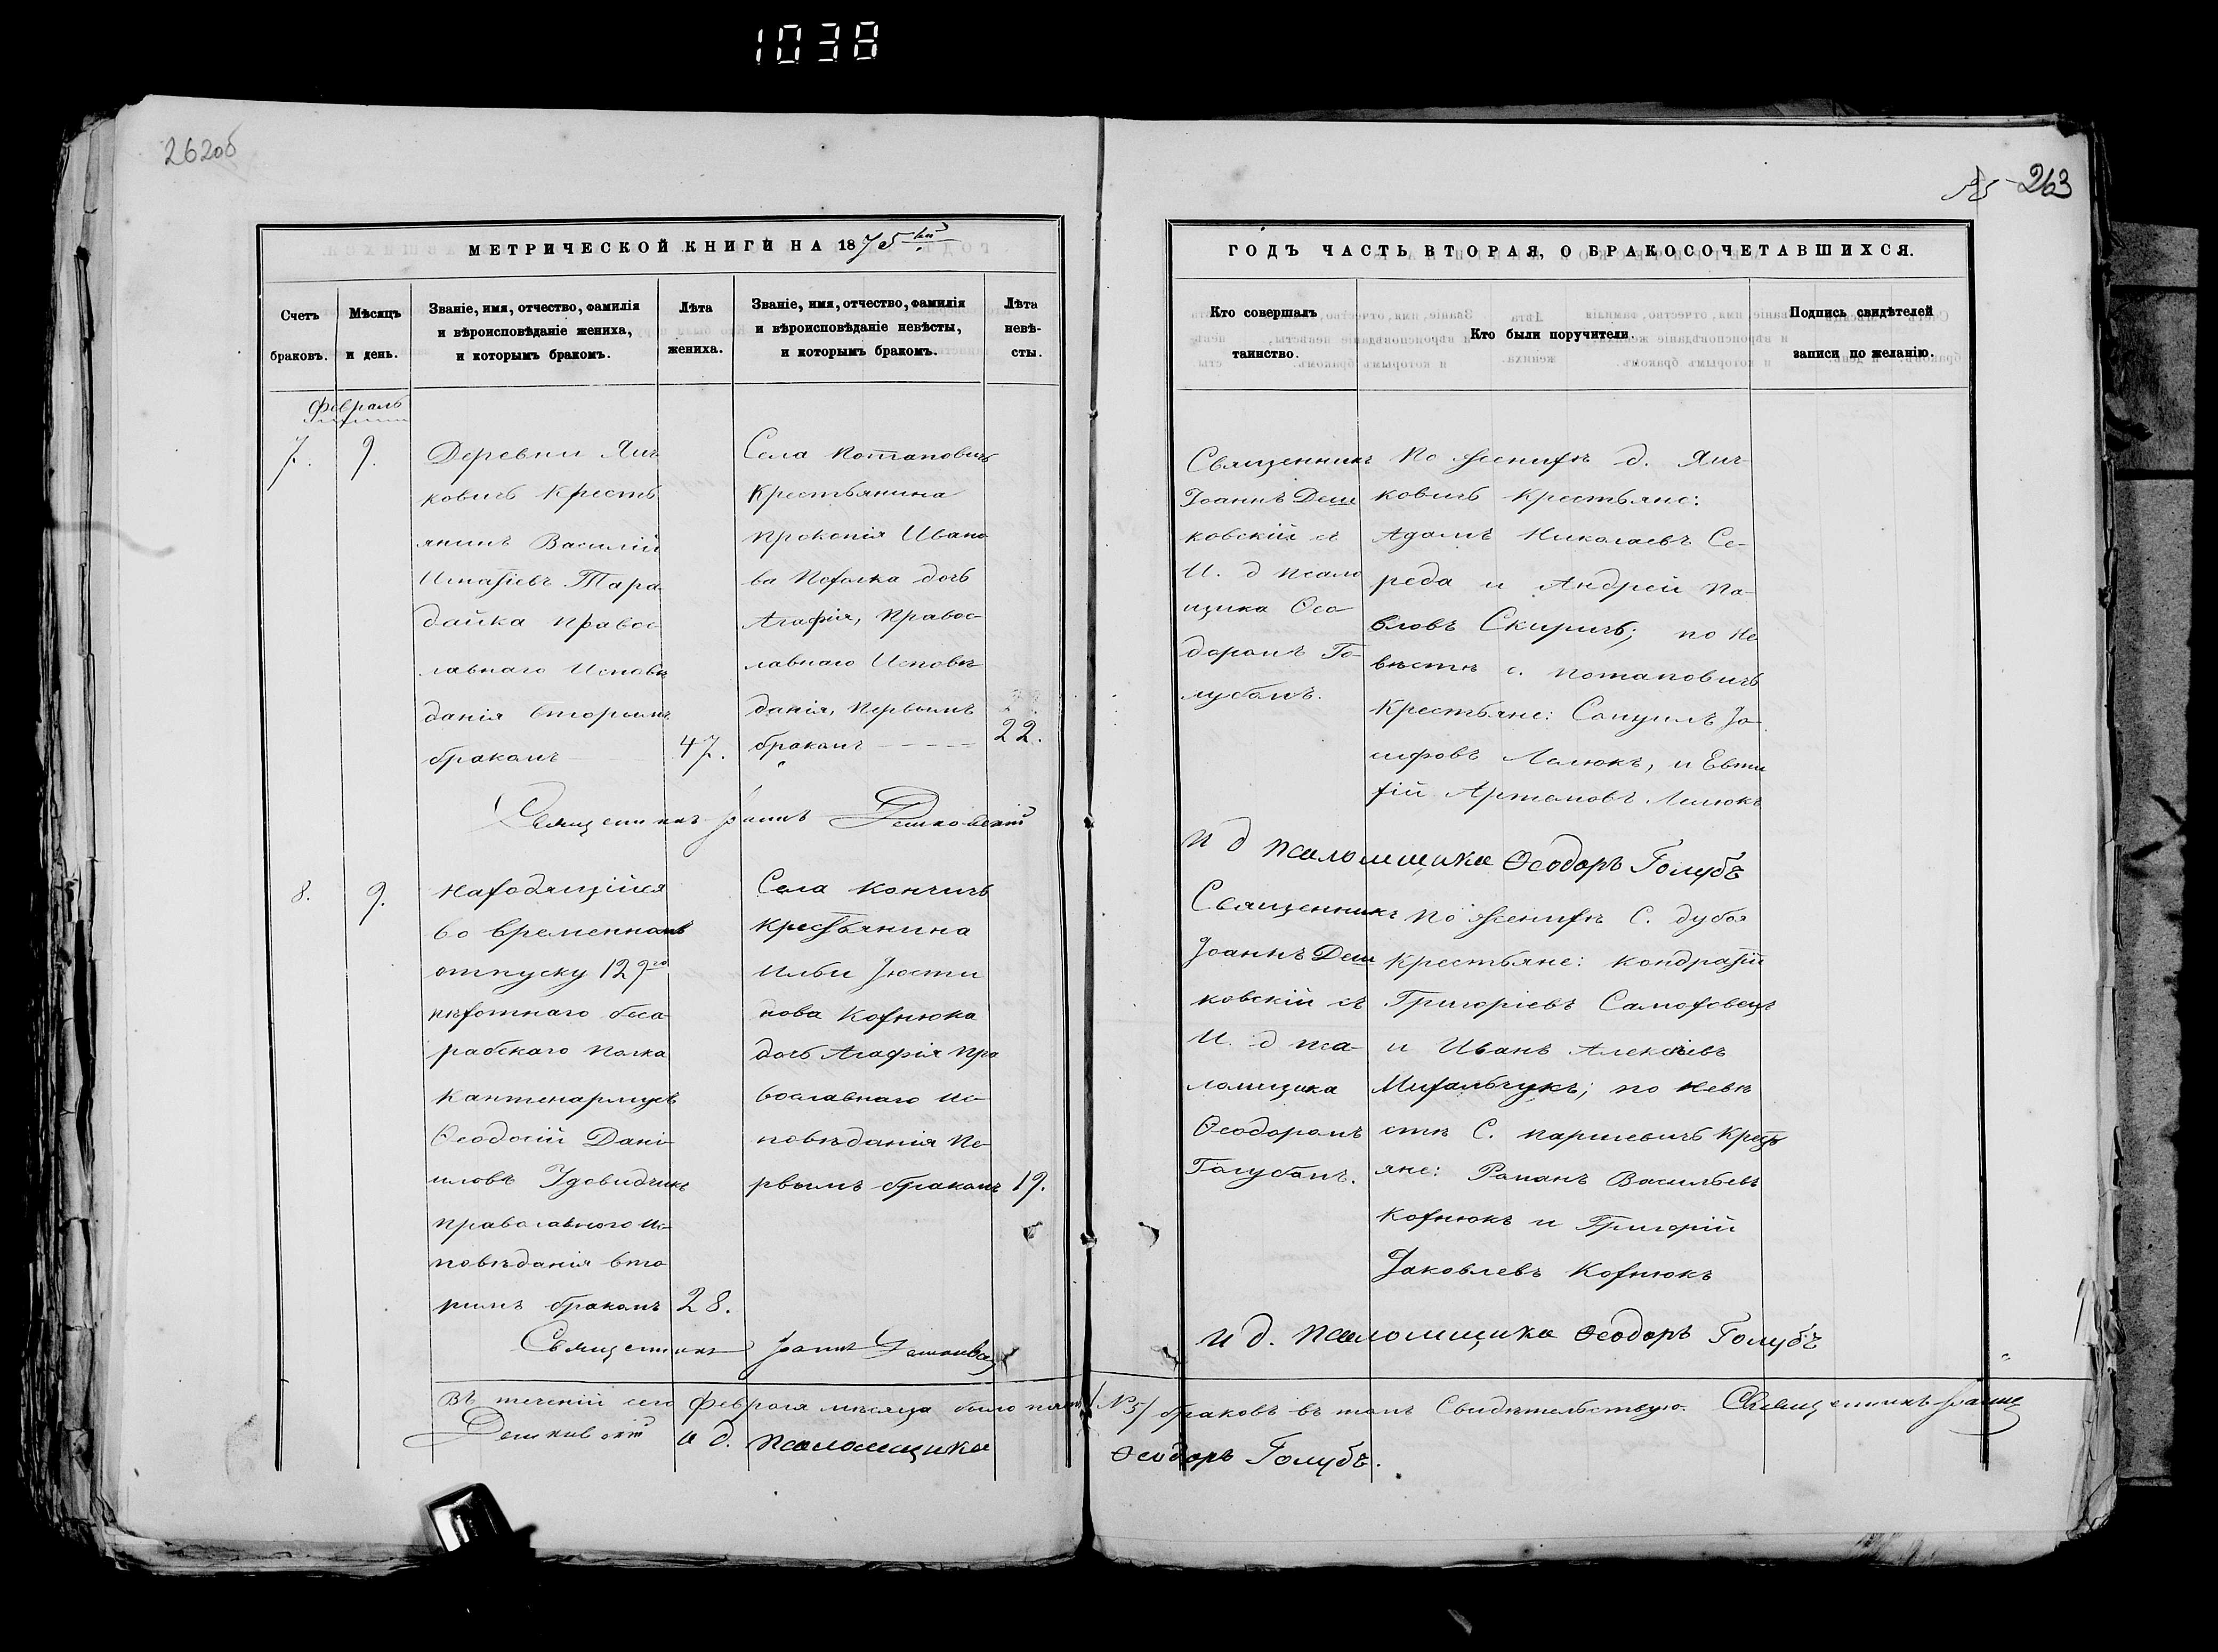 1038
262об
263
МЕТРИЧЕСКОЙ КНИГИ НА 1875ый
Счетъ браковъ.
Мѣсяцъ и день.
Званіе, имя, отчество, фамилія
и вѣроисповѣданіе жениха,
и которымъ бракомъ.
Лѣта
жениха.
Званіе, имя, отчество, фамилія
и вѣроисповѣданіе невѣсты,
и которымъ бракомъ.
Лѣта
невѣ-
сты.
Февраль
7.
9.
Деревни Яич
ковичъ Кресть
янинъ Василій
Тара
дайка Правос
лавнаго Исповѣ
данія вторымъ
бракомъ
47.
Села Потаповичъ
Крестьянина
Прокопія Ивано
ва дочь
Агафія, Правос-
лавнаго Исповѣ
данія, Первымъ
бракомъ
22.
Священникъ Іоаннъ Дешковскій
8.
9.
Находящійся
во временномъ
отпуску 129го
пѣхотнаго беса-
рабскаго Полка
Каптенармусъ
Ѳеодосій Дані-
иловъ Удовидчикъ
православного Ис-
повѣданія вто
рымъ бракомъ
28.
Села Кончичъ
Крестьянина
Ильи Іюсти
нова Кохнюка
дочь Агафія Пра
вославнаго Ис-
повѣданія Пе-
рвымъ бракомъ
19.
Священникъ Іоаннъ
Въ теченіи сего Февраля мѣсяца было пять
Дешковскій И д. Псаломщика
ГОДЪ ЧАСТЬ ВТОРАЯ, О БРАКОСОЧЕТАВШИХСЯ.
Кто совершалъ
таинство.
Кто были поручители.
Подпись свидѣтелей
записи по желанію.
Священникъ
Іоаннъ Деш
ковскій съ
И. д Псало
мщика Ѳео
доромъ Го-
лубомъ.
По женихѣ д. Яич-
ковичъ Крестьяне:
Адамъ Николаевъ Се-
реда и Андрей Па-
вловъ Скиричъ; по Не
вѣстѣ с. Потаповичъ
Крестьяне: Самуилъ Іо-
сифовъ Лемюкъ, и Евти
хій Артемовъ Лемюкъ
И д Псаломщика Ѳеодоръ Голубъ
Священникъ
Іоаннъ Деш
ковскій съ
И. д Пса-
ломщика
Ѳеодоромъ
Голубомъ.
По женихѣ С. Дубоя
Крестьяне: Кондратій
Григоріевъ Самоховецъ
и Иванъ Алексѣевъ
Михальчукъ; по Невѣ
стѣ С. Паршевичъ Крест
яне: Романъ Васильевъ
Кохнюкъ и Григорій
Іаковлевъ Кохнюкъ
И д. Псаломщика Ѳеодоръ Голубъ
/№5/ браковъ въ томъ Свидѣтельствую. Священникъ Іоаннъ
Ѳеодоръ Голубъ.